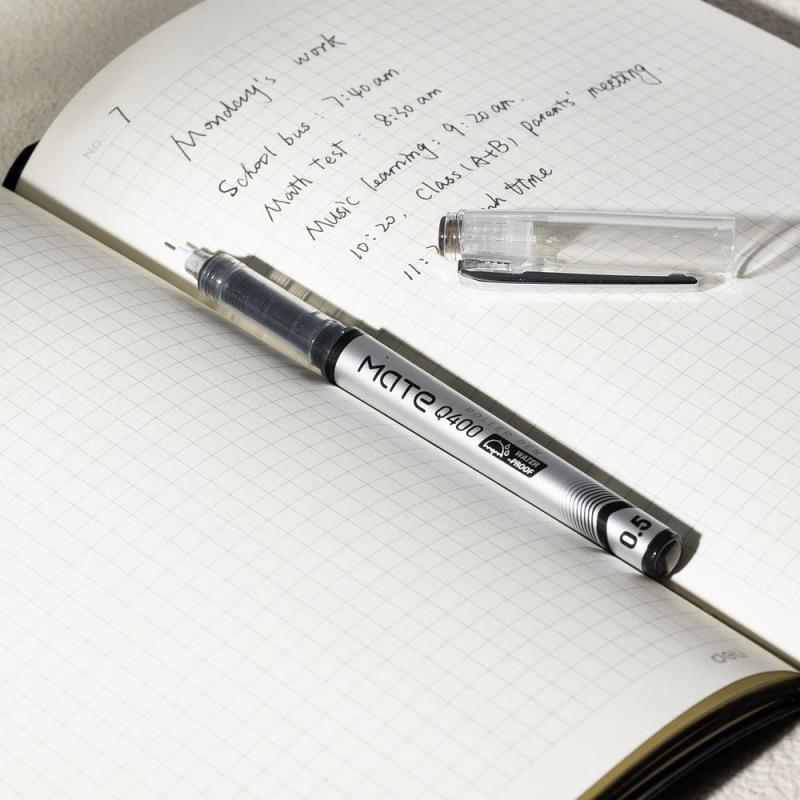 NO.: 7
Monday's work
School bus : 7:40 am.
Math test : 8:30 am
Music learning : 9:20 am.
10:20, Class (A+B) parents' meeting.
11: time
MATE Q400
ROLLER PEN
WATER
-PROOF
0.5
deli